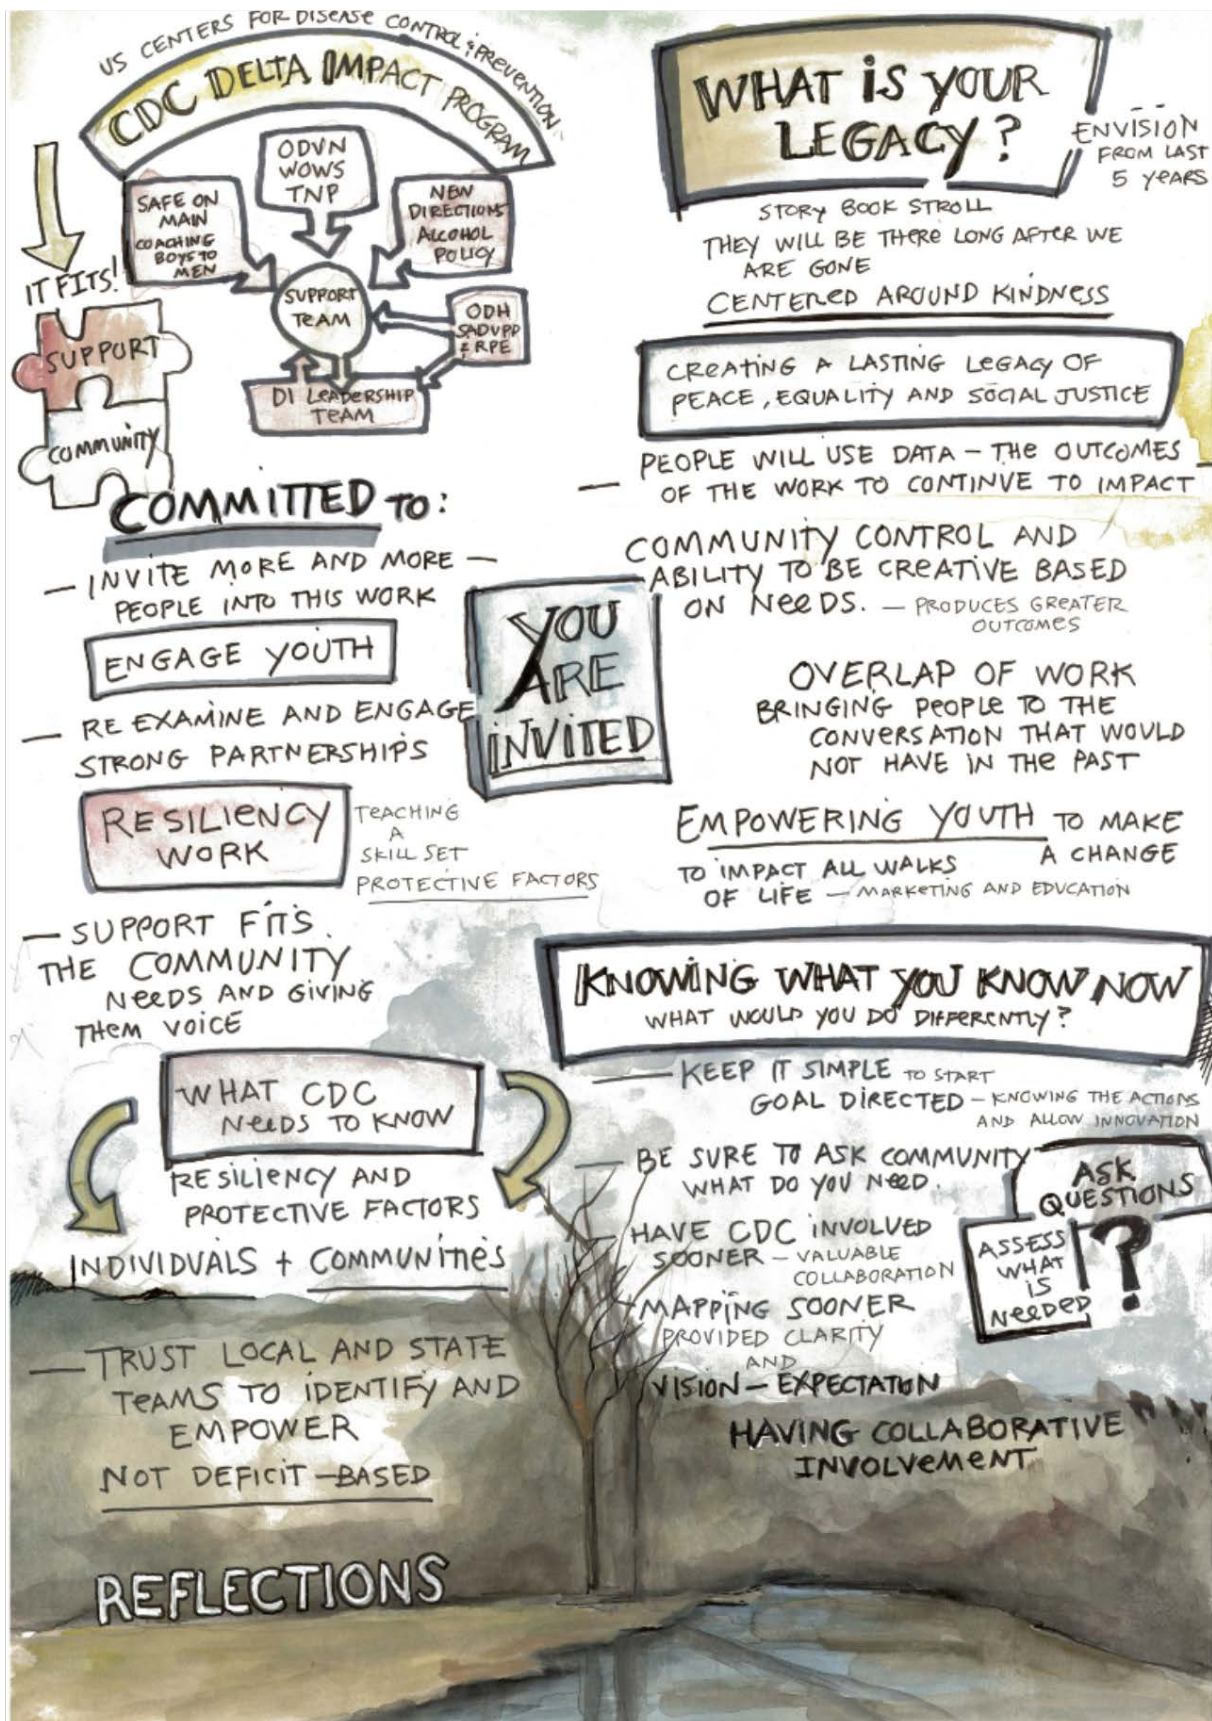 US CENTERS FOR DISEASE CONTROL & PREVENTION
CDC DELTA IMPACT PROGRAM
ODVN
WOWS
TNP
SAFE ON
MAIN
COACHING
BOYS TO
MEN
NEW
DIRECTIONS
ALCOHOL
POLICY
SUPPORT
TEAM
ODH
SADVPP
& RPE
DI LEADERSHIP
TEAM
IT FITS!
SUPPORT
COMMUNITY
COMMITTED TO:
— INVITE MORE AND MORE —
PEOPLE INTO THIS WORK
ENGAGE YOUTH
— RE EXAMINE AND ENGAGE
STRONG PARTNERSHIPS
RESILIENCY
WORK
TEACHING
A
SKILL SET
PROTECTIVE FACTORS
— SUPPORT FITS
THE COMMUNITY
NEEDS AND GIVING
THEM VOICE
YOU
ARE
INVITED
WHAT CDC
NEEDS TO KNOW
RESILIENCY AND
PROTECTIVE FACTORS
INDIVIDUALS + COMMUNITIES
— TRUST LOCAL AND STATE
TEAMS TO IDENTIFY AND
EMPOWER
NOT DEFICIT-BASED
REFLECTIONS
WHAT IS YOUR
LEGACY?
ENVISION
FROM LAST
5 YEARS
STORY BOOK STROLL
THEY WILL BE THERE LONG AFTER WE
ARE GONE
CENTERED AROUND KINDNESS
CREATING A LASTING LEGACY OF
PEACE, EQUALITY AND SOCIAL JUSTICE
PEOPLE WILL USE DATA - THE OUTCOMES
— OF THE WORK TO CONTINUE TO IMPACT
COMMUNITY CONTROL AND
ABILITY TO BE CREATIVE BASED
ON NEEDS. — PRODUCES GREATER
OUTCOMES
OVERLAP OF WORK
BRINGING PEOPLE TO THE
CONVERSATION THAT WOULD
NOT HAVE IN THE PAST
EMPOWERING YOUTH TO MAKE
A CHANGE
TO IMPACT ALL WALKS
OF LIFE — MARKETING AND EDUCATION
KNOWING WHAT YOU KNOW NOW
WHAT WOULD YOU DO DIFFERENTLY?
— KEEP IT SIMPLE TO START
GOAL DIRECTED - KNOWING THE ACTIONS
AND ALLOW INNOVATION
— BE SURE TO ASK COMMUNITY
WHAT DO YOU NEED.
HAVE CDC INVOLVED
SOONER - VALUABLE
COLLABORATION
MAPPING SOONER
PROVIDED CLARITY
AND
VISION - EXPECTATION
HAVING COLLABORATIVE
INVOLVEMENT
ASK
QUESTIONS
?
ASSESS
WHAT
IS
NEEDED